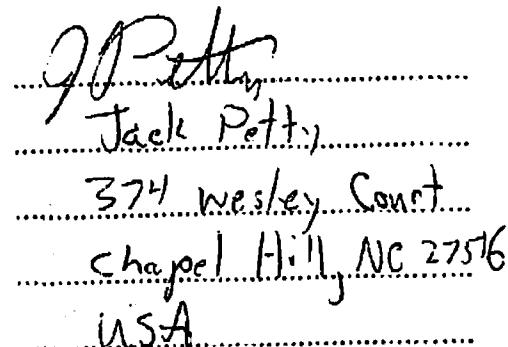 J Petty
Jack Petty
374 Wesley Court
Chapel Hill, NC 27516
USA